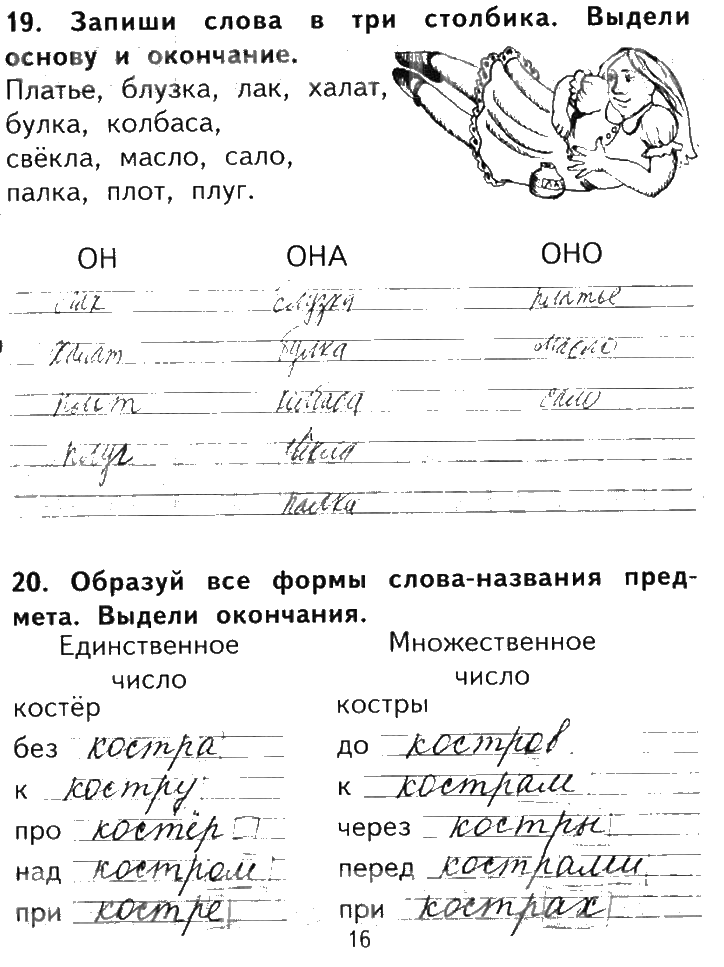 19. Запиши слова в три столбика. Выдели
основу и окончание.
Платье, блузка, лак, халат,
булка, колбаса,
свёкла, масло, сало,
палка, плот, плуг.
ОН ОНА ОНО
лак блузка платье
халат булка масло
плот колбаса сало
плуг свёкла
палка
20. Образуй все формы слова-названия пред-
мета. Выдели окончания.
Единственное Множественное
число число
костёр костры
без костра до костров
к костру к кострам
про костёр через костры
над костром перед кострами
при костре при кострах
16